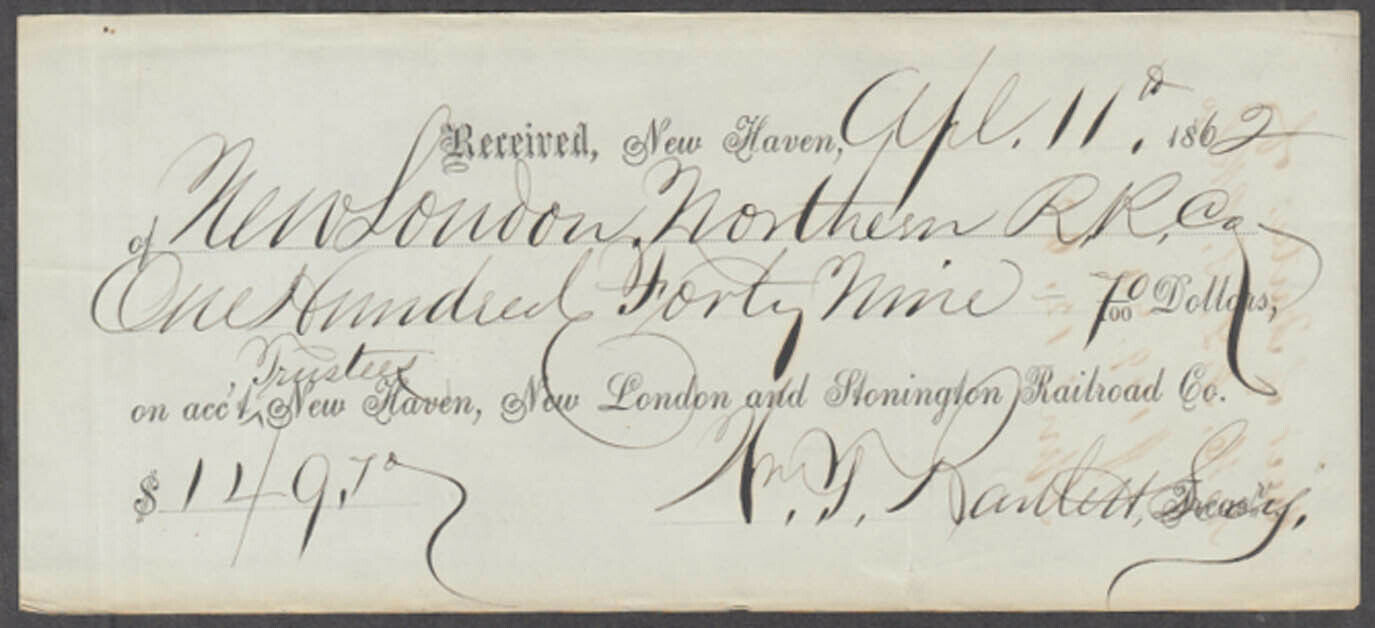 Received, New Haven, Apl. 11th. 1862
of New London, Northern R.R. Co
One Hundred Forty Nine 70/100 Dollars,
Trustees
on acc't, New Haven, New London and Stonington Railroad Co.
$ 149.70 Bartlett,